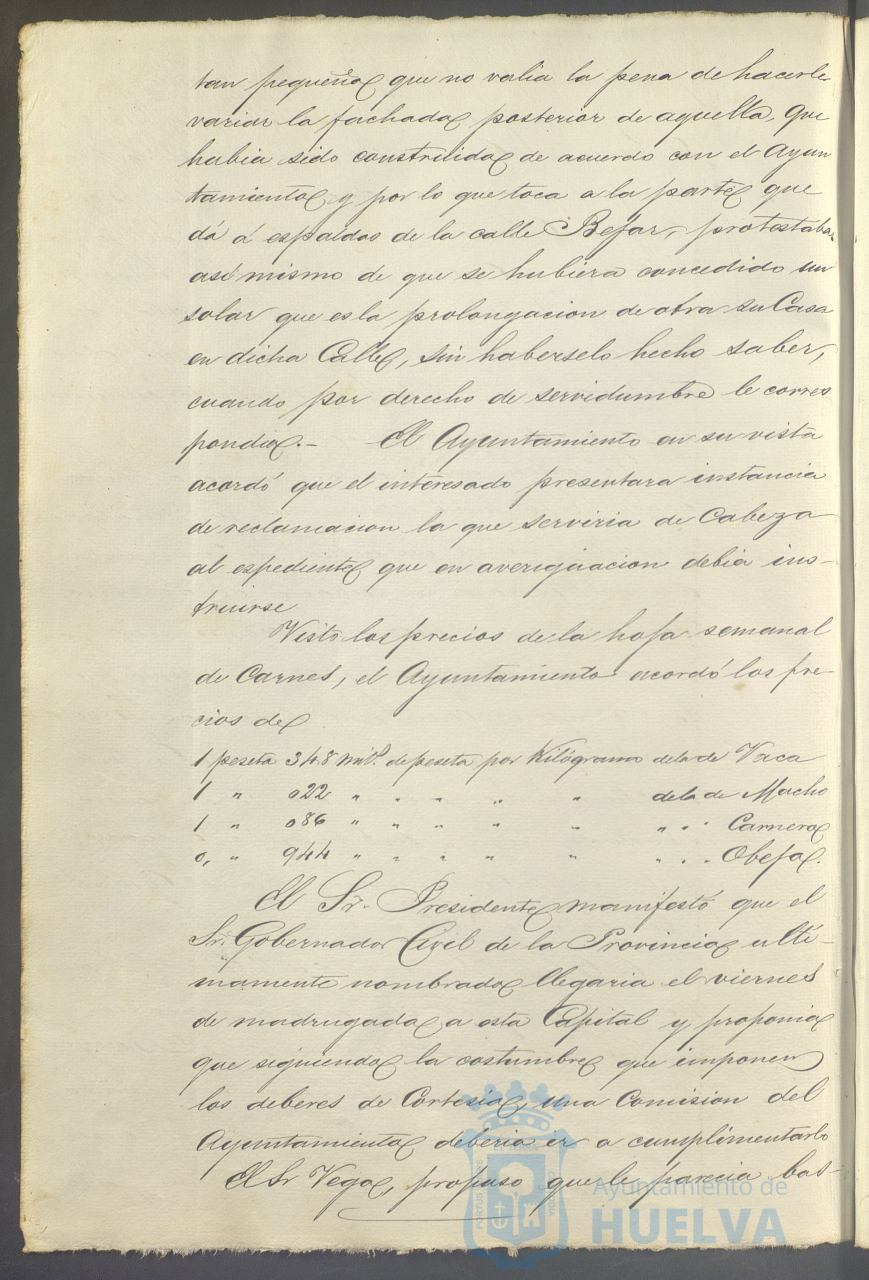 tan pequeña que no valia la pena de hacerle
variar la fachada posterior de aquella, que
habia sido construida de acuerdo con el Ayun
tamiento y por lo que toca a la parte que
dá á espaldas de la calle Bejar, protestaba
asi mismo de que se hubiera concedido un
solar que es la prolongacion de otra su Casa
en dicha Calle, sin haberselo hecho saber,
cuando por derecho de servidumbre le corres
pondia.- El Ayuntamiento en su vista
acordó que el interesado presentara instancia
de reclamacion la que serviria de Cabeza
al espediente que en averiguacion debia ins-
truirse
Visto los precios de la hoja semanal
de Carnes, el Ayuntamiento acordó los pre-
cios de
1 peseta 348 mil.s de peseta por Kilógramo de la de Vaca
1 " 022 " " " " " de la de Macho
1 " 086 " " " " " " " " Carnero
0, " 944 " " " " " " " " Obeja.
El Sr. Presidente manifestó que el
Sr. Gobernador Civil de la Provincia ulti-
mamente nombrado llegaria el viernes
de madrugada a esta Capital y proponia
que siguiendo la costumbre que imponen
los deberes de Cortesia, una Comision del
Ayuntamiento deberia ir a cumplimentarlo
El Sr Vega, propuso que le parecia bas-
Ayuntamiento de
HUELVA